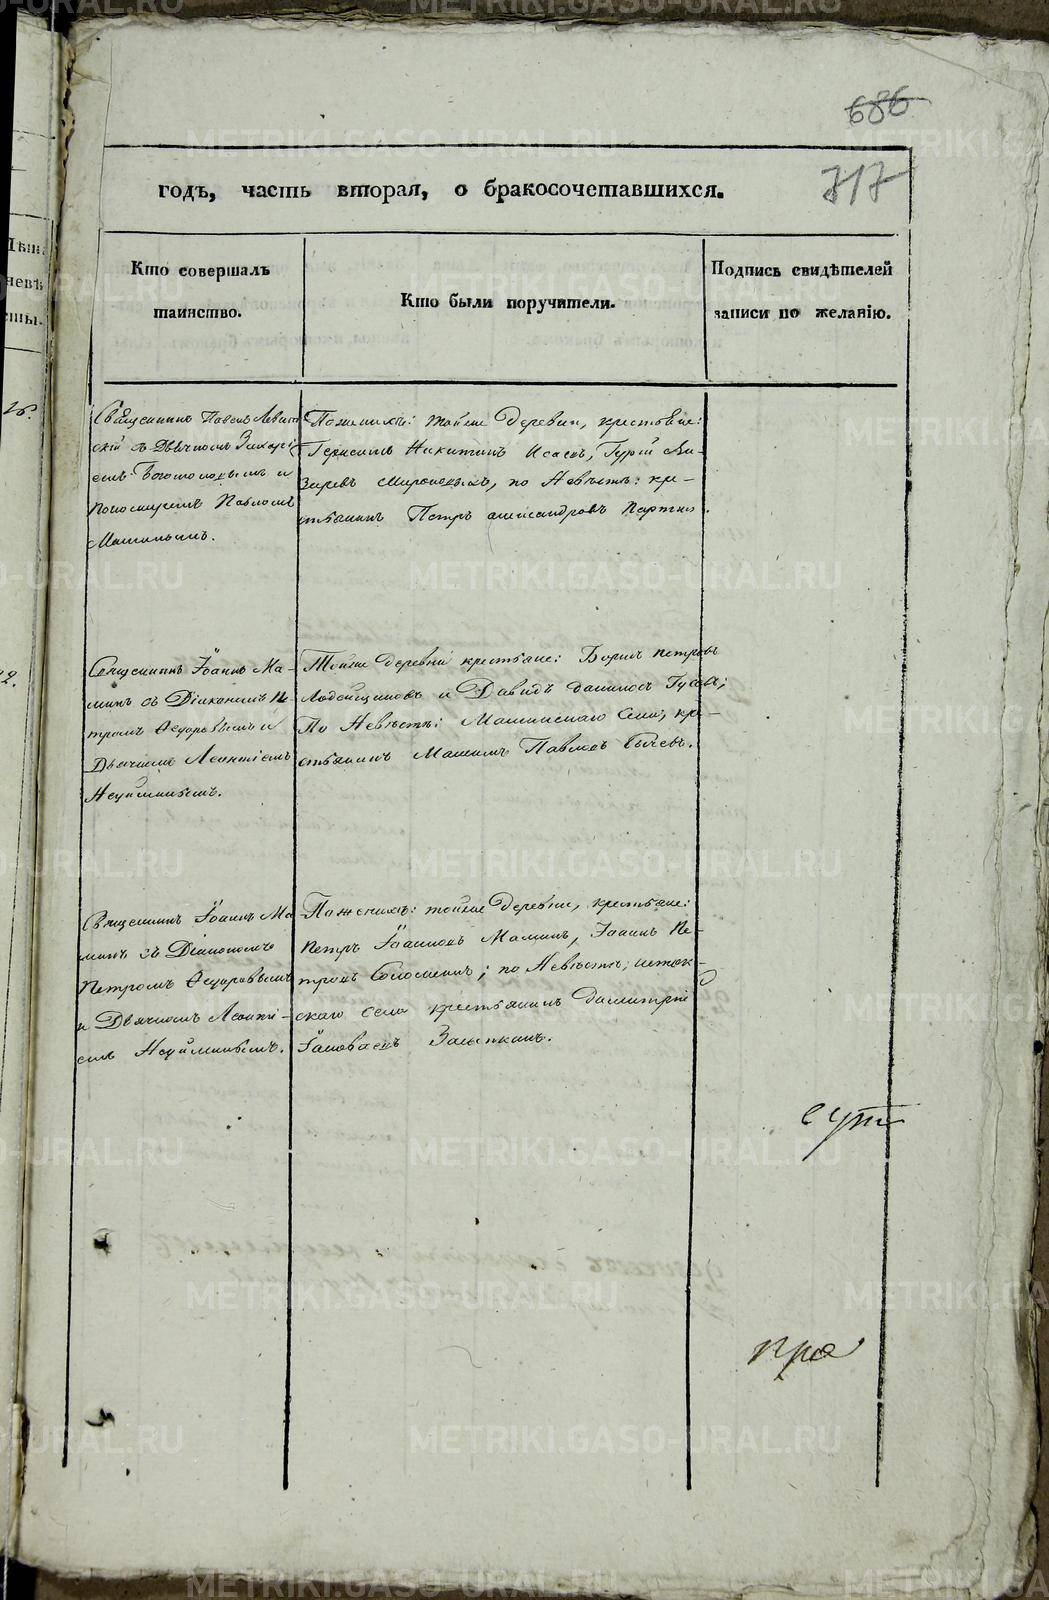 686
717
годъ, часть вторая, о бракосочетавшихся.
Кто совершалъ
таинство.
Кто были поручители.
Подпись свидѣтелей
записи по желанію.
Священникъ Павелъ Левит
скій съ Дьячкомъ Захарі
емъ Богомоловымъ и
Пономаремъ Павломъ
Маминымъ.
По женихѣ: тойже деревни, крестьяне:
Герасимъ Никитинъ Исаевъ, Гурій Ла-
заревъ, по Невѣстѣ: кре-
стьянинъ Петръ Александровъ
Священникъ Іоаннъ Ма-
минъ съ Діакономъ Пе
тромъ Ѳедоровымъ и
Дьячкомъ Леонтіемъ
Неуйминымъ.
Тойже деревни крестьяне: Борисъ Петровъ
и Давидъ Даниловъ Гусевъ;
По Невѣстѣ: Маминскаго Села, кре-
стьянинъ Максимъ Павловъ Сычевъ.
Священникъ Іоаннъ Ма
минъ съ Діакономъ
Петромъ Ѳедоровымъ
и Дьячкомъ Леонті-
емъ Неуйминымъ.
По женихѣ: тойже Деревни, крестьяне:
Петръ Іоанновъ Маминъ, Іоаннъ Пе-
тровъ Соломеинъ; по Невѣстѣ;
скаго села крестьянинъ Димитрій
METRIKI.GASO-URAL.RU